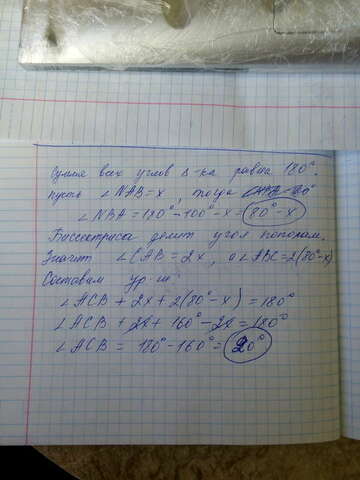 Сумма всех углов Δ-ка равна 180°.
Пусть ∠NAB=x, тогда
∠NBA=180°-100°-x=80°-x
Биссектриса делит угол пополам.
Значит ∠CAB=2x, а ∠ABC=2(80°-x)
Составим ур-ие
∠ACB + 2x+2(80°-x)=180°
∠ACB + 2x+ 160°-2x=180°
∠ACB = 180°-160°=20°